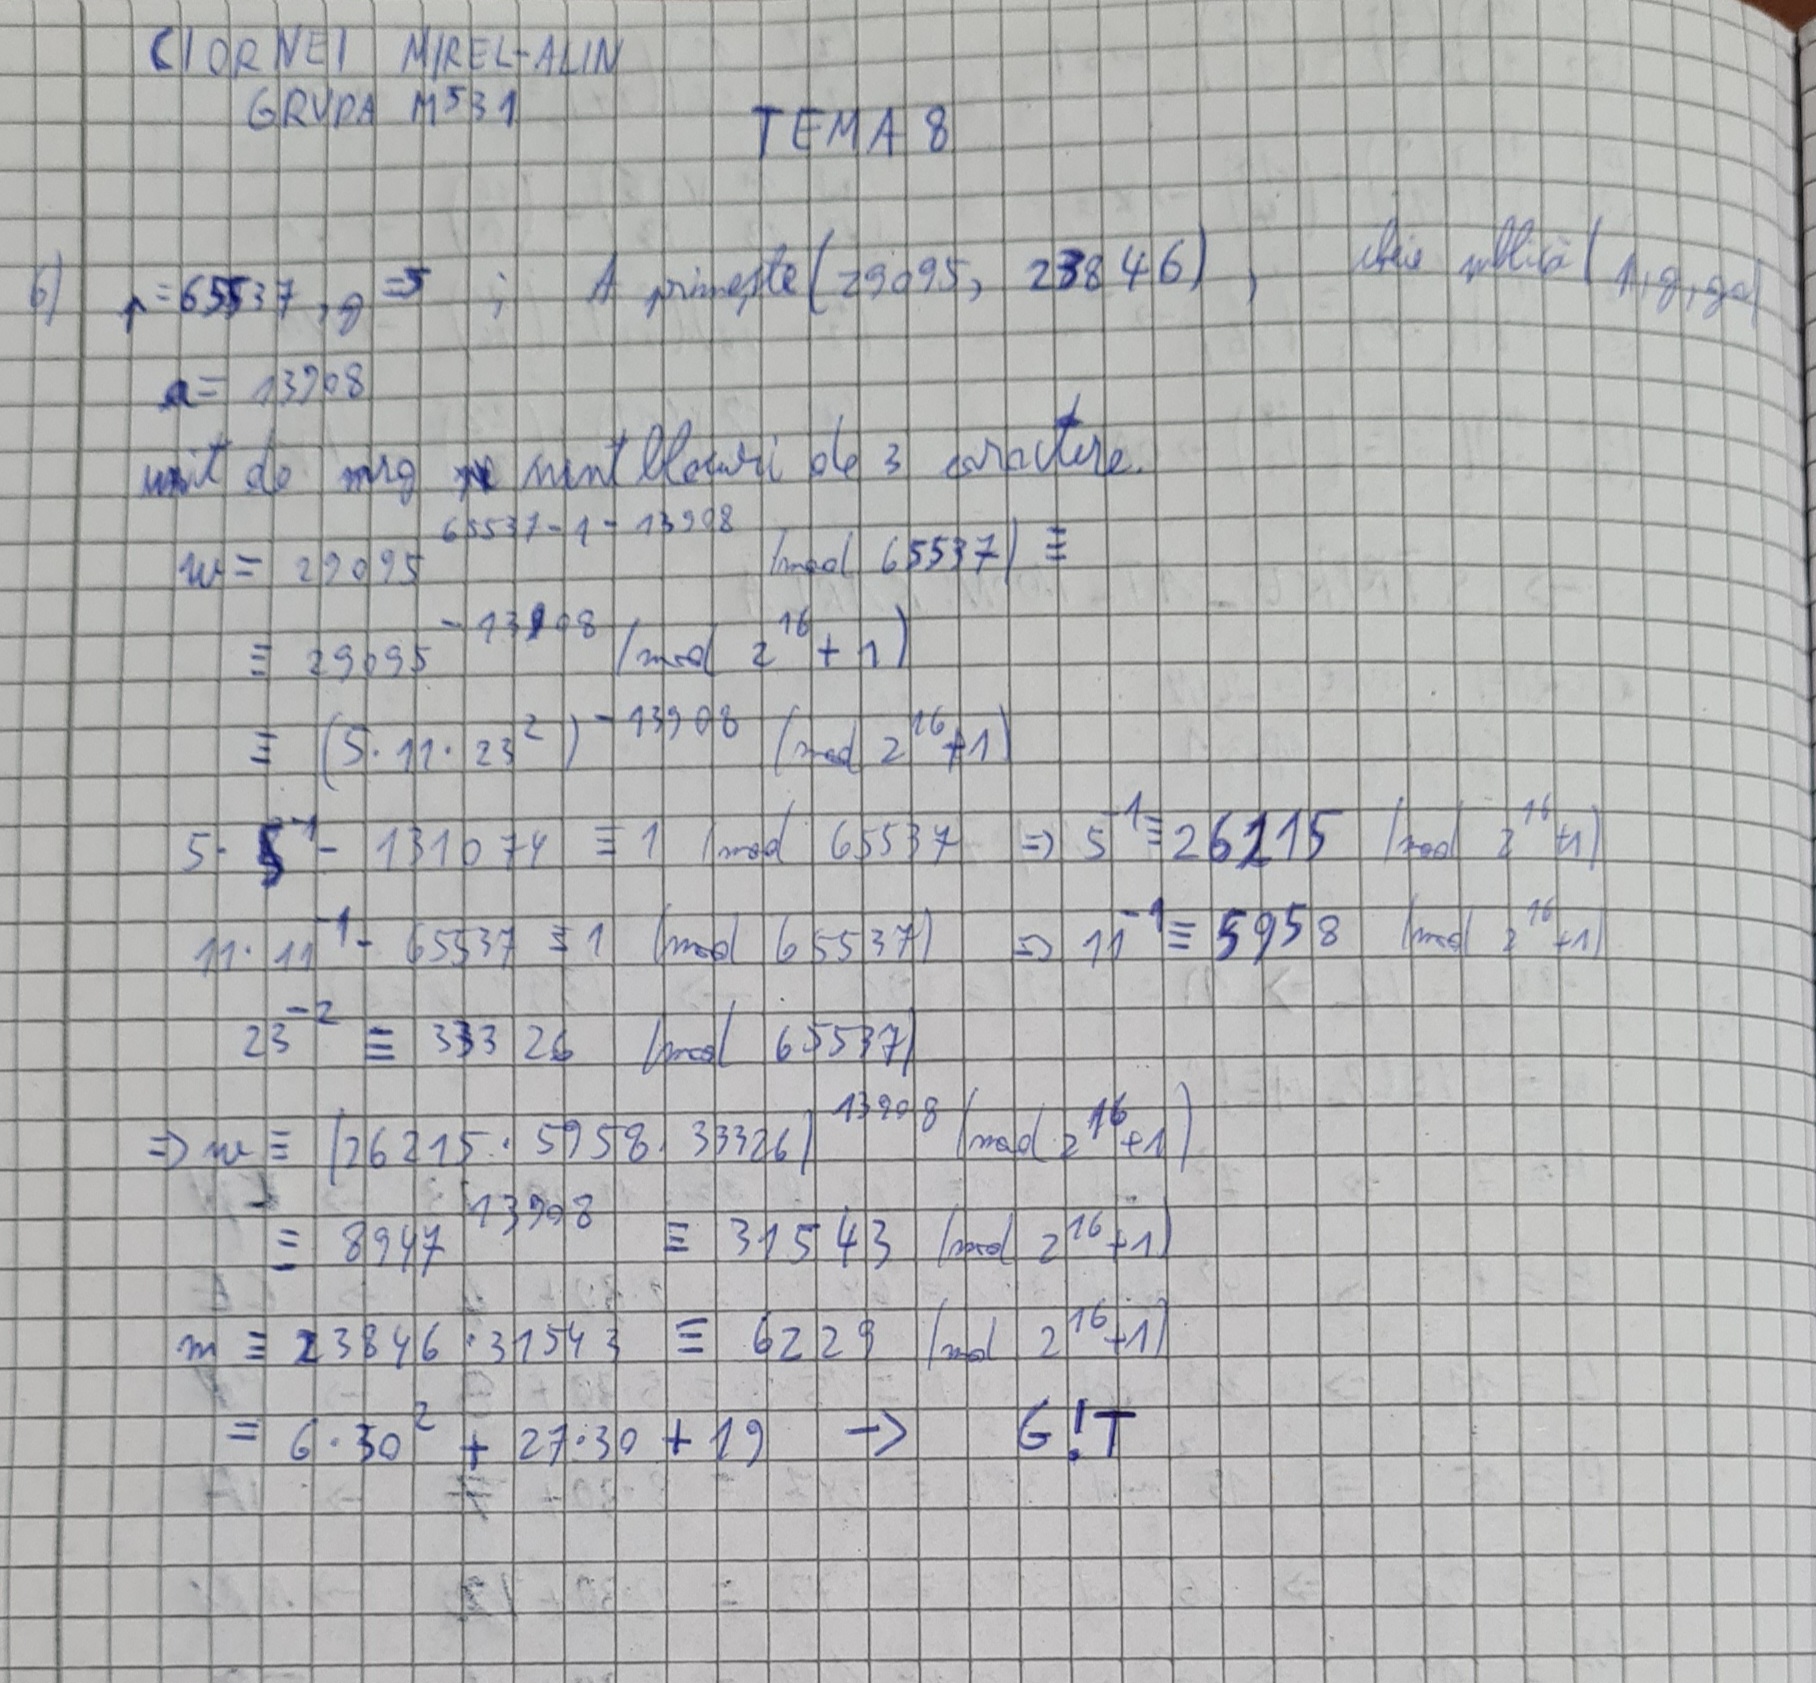 CIORNEI MIREL-ALIN
GRUPA M531
TEMA 8
6) p=65537, g=5 ; A primește (29095, 23846), cheie publică (p, g, ga)
a = 13908
unit de msg sunt blocuri de 3 caractere.
w = 29095^65537-1-13908 (mod 65537) ≡
≡ 29095^-13908 (mod 2^16+1)
≡ (5·11·23^2)^-13908 (mod 2^16+1)
5·5^-1 - 131074 ≡ 1 (mod 65537 ⇒ 5^-1 ≡ 26215 (mod 2^16+1)
11·11^-1 - 65537 ≡ 1 (mod 65537) ⇒ 11^-1 ≡ 5958 (mod 2^16+1)
23^-2 ≡ 33326 (mod 65537)
⇒ w ≡ (26215·5958·33326)^13908 (mod 2^16+1)
≡ 8947^13908 ≡ 31543 (mod 2^16+1)
m ≡ 23846·31543 ≡ 6229 (mod 2^16+1)
= 6·30^2 + 27·30 + 19 → G!T